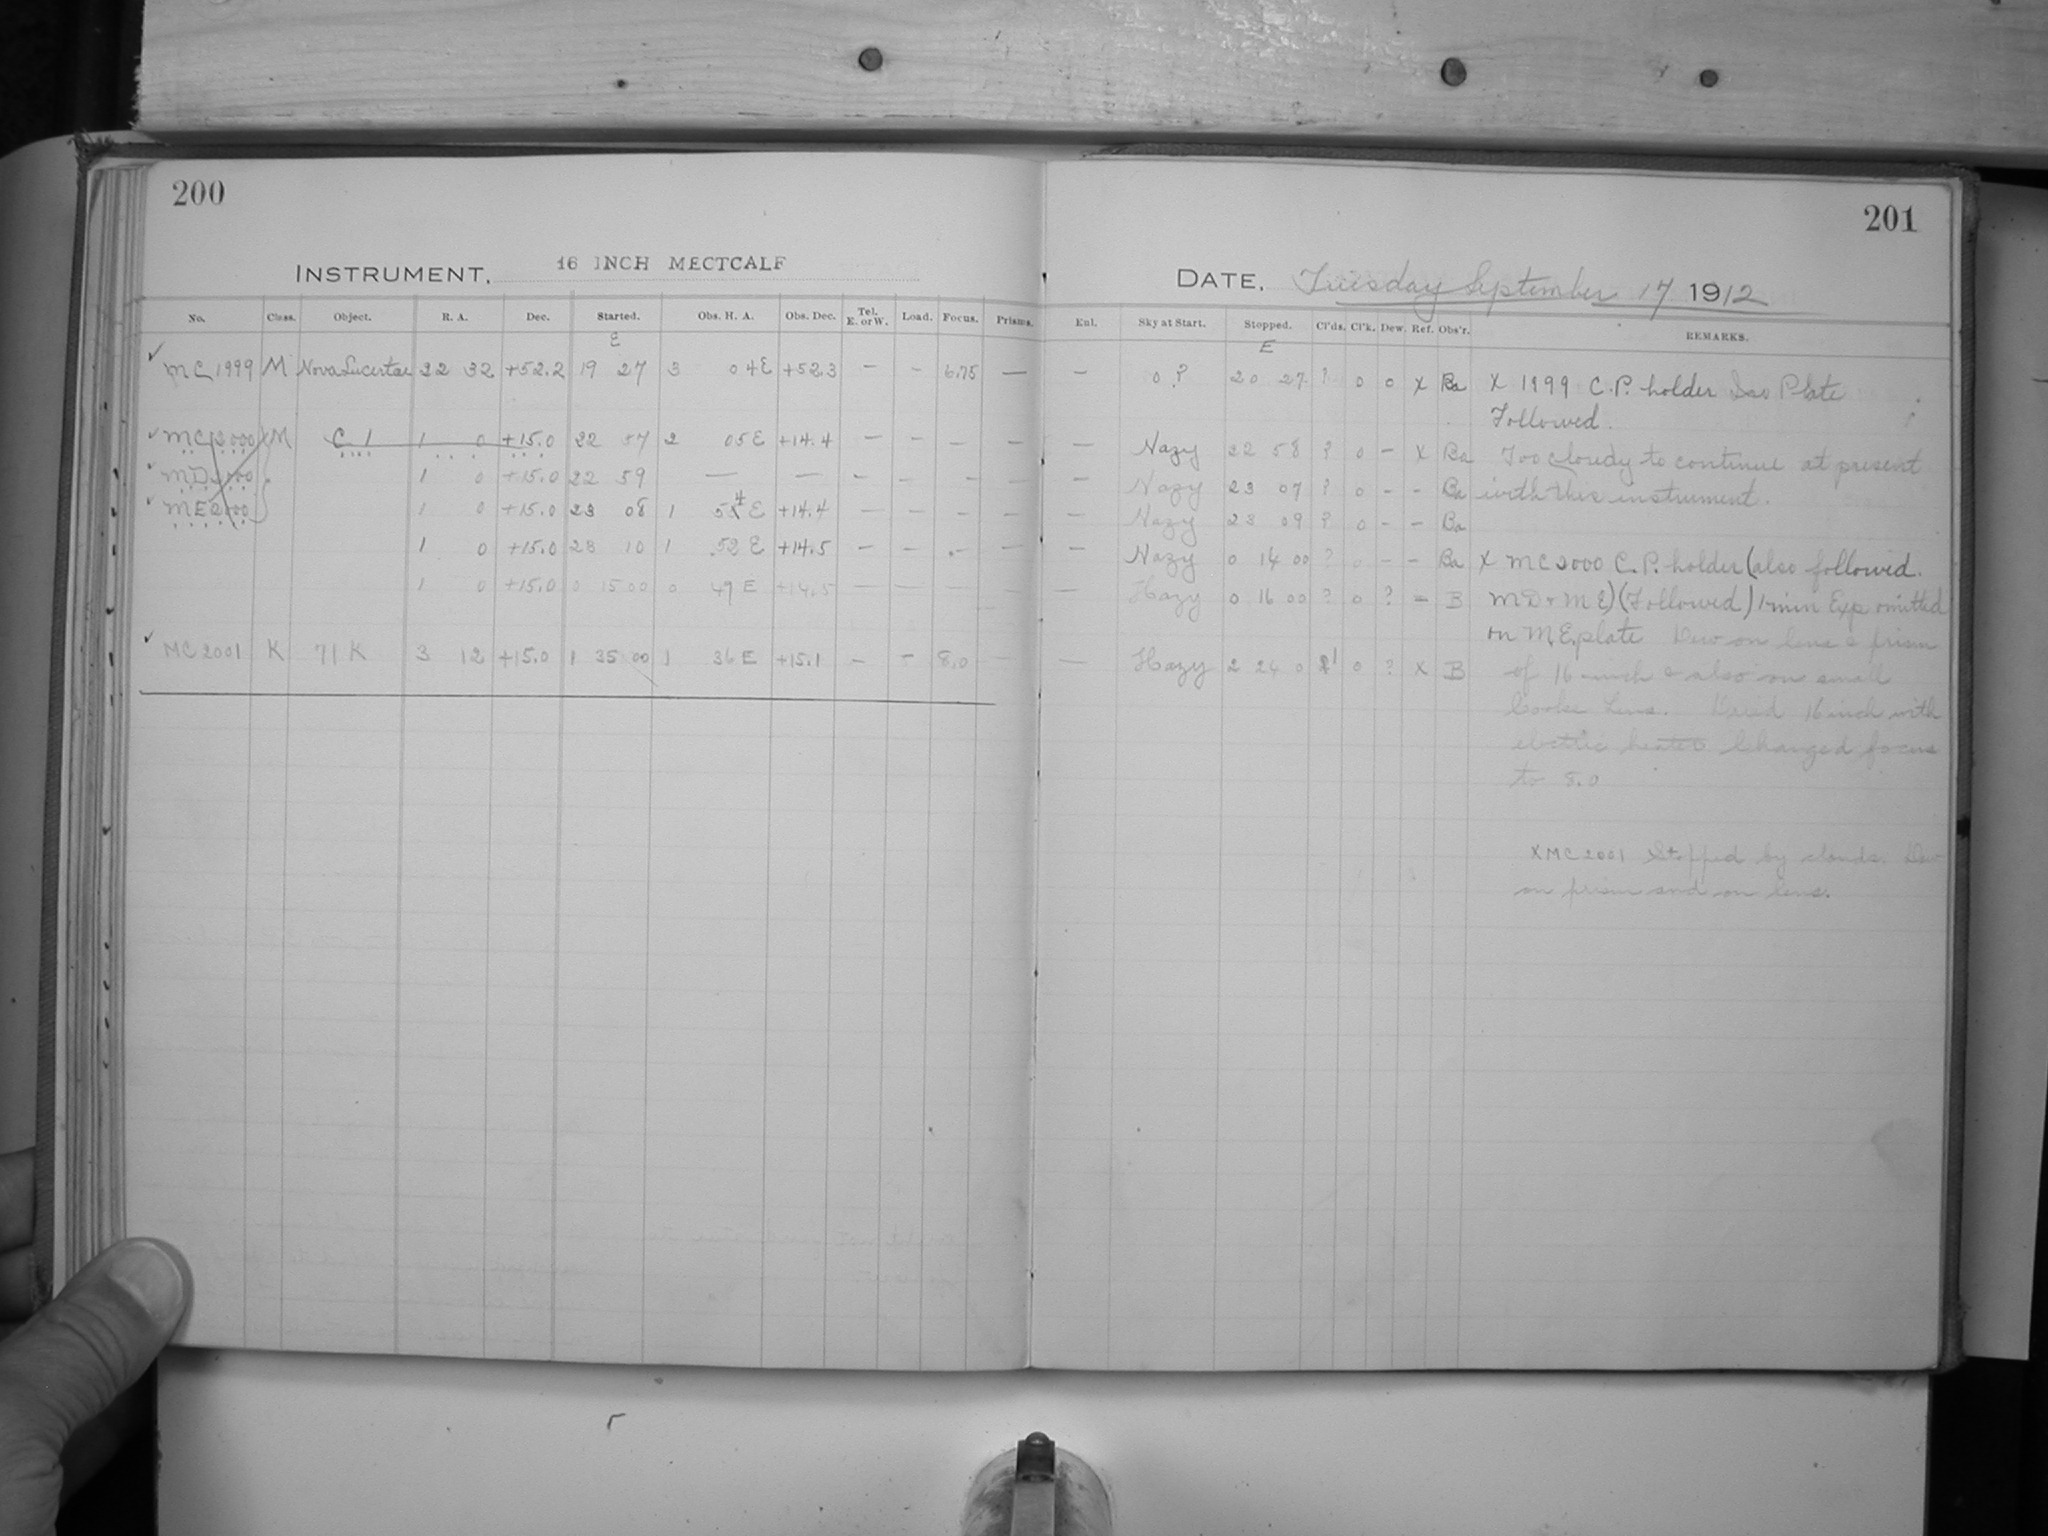 200
201
INSTRUMENT. 16 INCH MECTCALF
DATE. Tuesday September 17 1912
No. Class. Object. R. A. Dec. Started. Obs. H. A. Obs. Dec. Tel. E. or W. Load. Focus. Prisms. Enl. Sky at Start. Stopped. Cl'ds. Cl'k. Dew. Ref. Obs'r. REMARKS.
E E
✓ MC 1999 M Nova Lacertae 22 32 +52.2 19 27 3 04 E +52.3 — - 6.75 — — 0 ? 20 27 ? 0 0 X Ba X 1999 C.P. holder Iso Plate
Followed.
✓ MC 2000 M C 1 1 0 +15.0 22 57 2 05 E +14.4 — — — — — Hazy 22 58 ? 0 — X Ba Too cloudy to continue at present
MD 1 0 +15.0 22 59 — — — — — — — Hazy 23 07 ? 0 - - Ba with this instrument.
✓ ME 2000 1 0 +15.0 23 08 1 54 E +14.4 — — — — — Hazy 23 09 ? 0 - - Ba
1 0 +15.0 23 10 1 52 E +14.5 — — — — — Hazy 0 14 00 ? 0 - - Ba X MC 2000 C.P. holder (also followed.
1 0 +15.0 0 15 00 0 49 E +14.5 — — — — — Hazy 0 16 00 ? 0 ? - B MD & ME) (Followed) 1 min Exp omitted
on ME plate Dew on lens & prism
✓ MC 2001 K 71 K 3 12 +15.0 1 35 00 1 36 E +15.1 — - 8.0 — — Hazy 2 24 0 1 0 ? X B of 16-inch & also on small
Cooke Lens. 16 inch with
electric heater Changed focus
to 8.0
X MC 2001 Stopped by clouds. Dew
on prism and on lens.